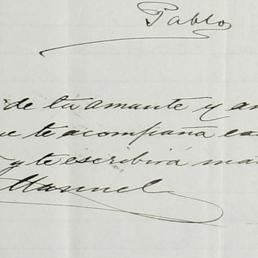 Pablo
de la amante y
te acompaña
y te escribirá
Manuel